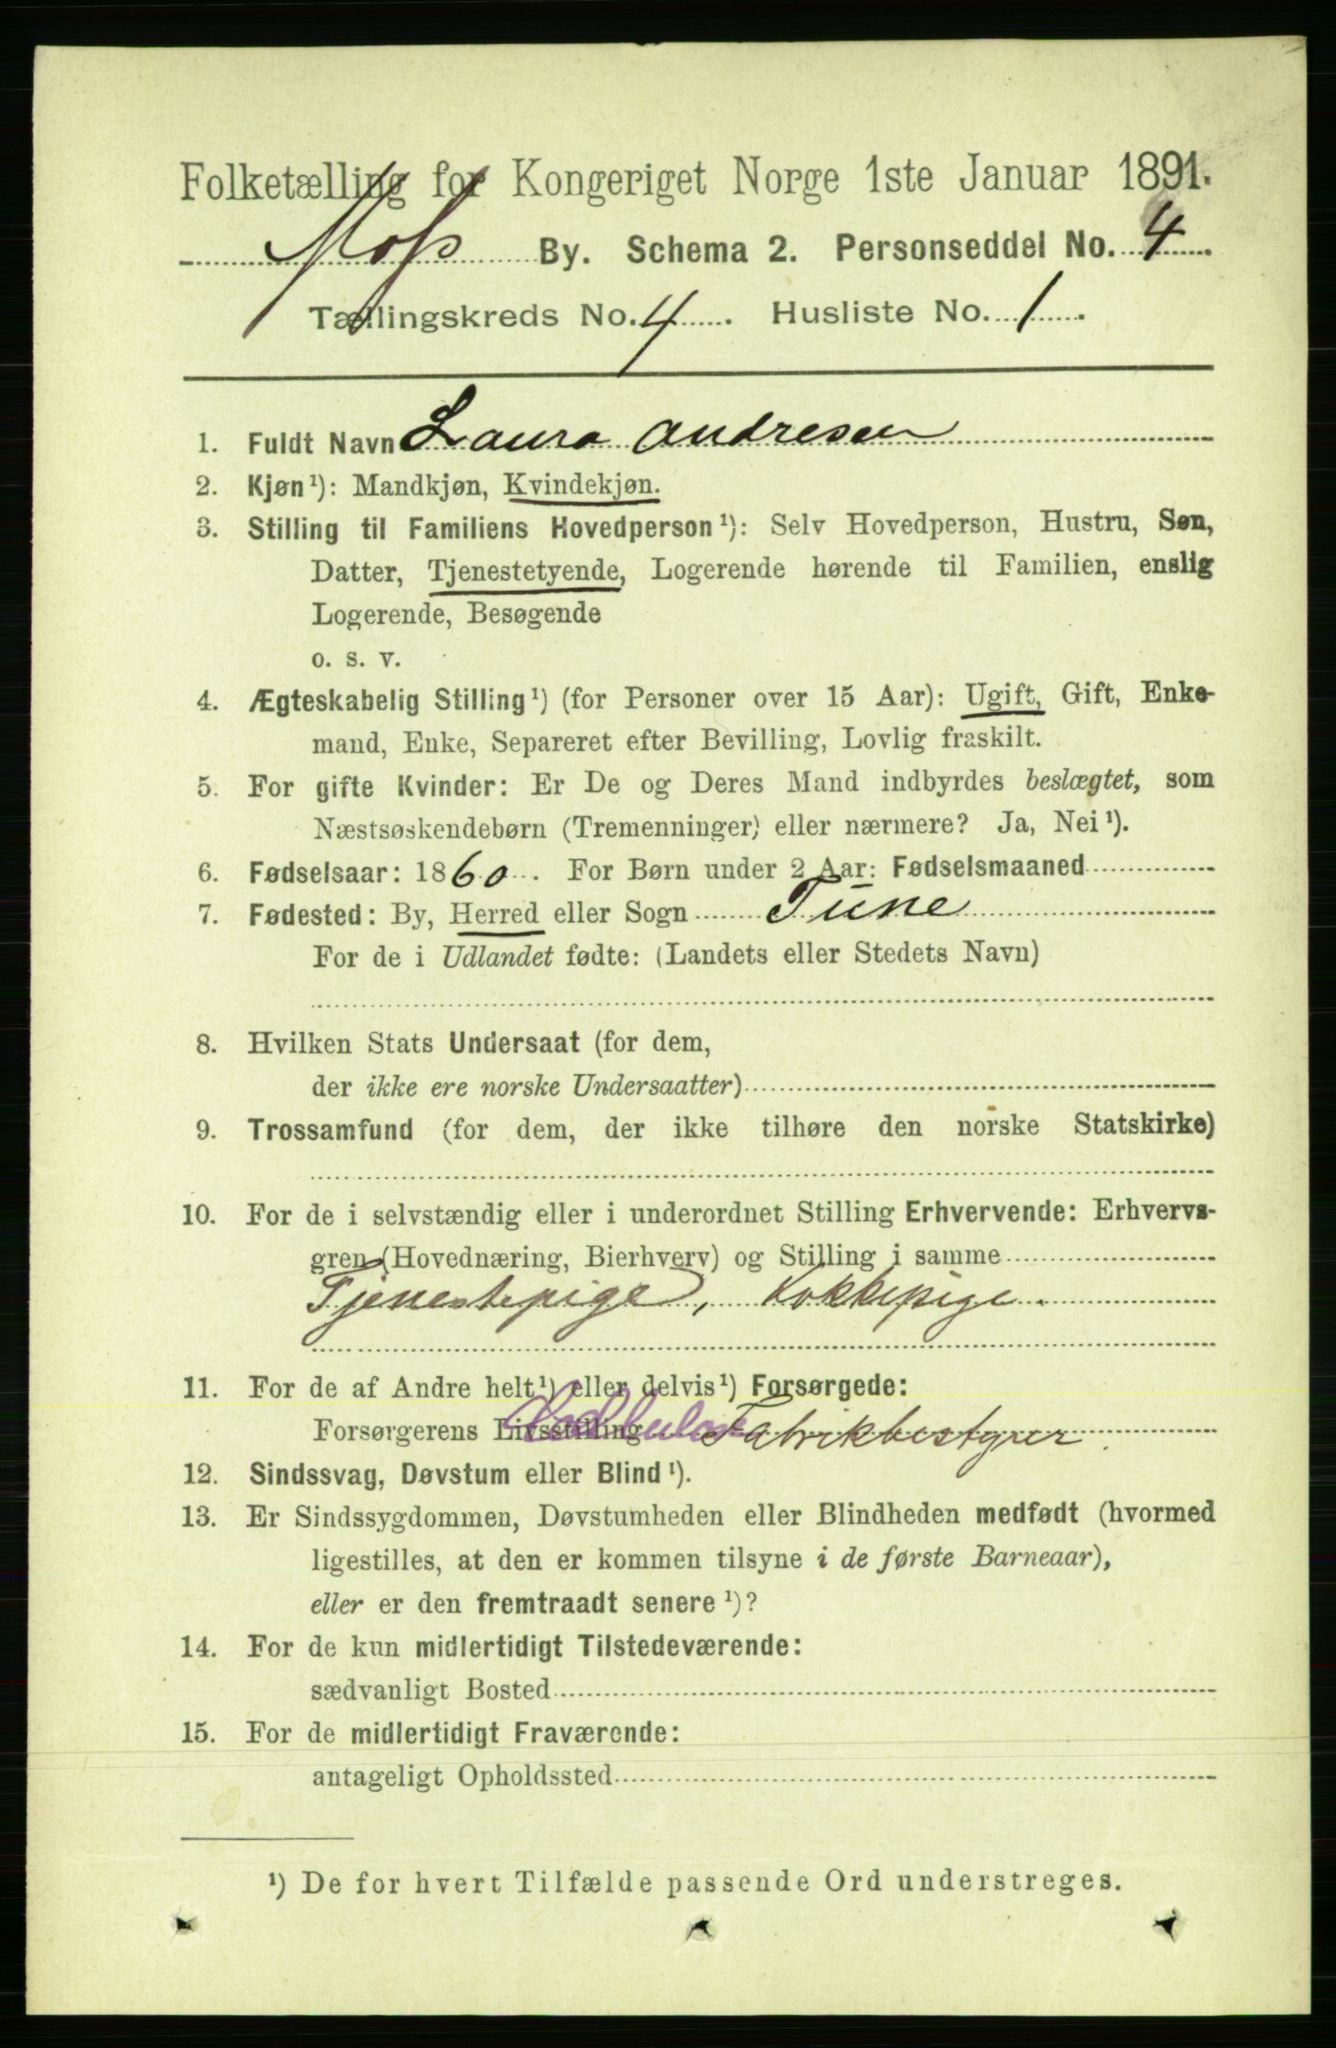 Folketælling for Kongeriget Norge 1ste Januar 1891.
Moss By. Schema 2. Personseddel No. 4
Tællingskreds No. 4. Husliste No. 1.
1. Fuldt Navn Laura Andresen
2. Kjøn¹): Mandkjøn, Kvindekjøn.
3. Stilling til Familiens Hovedperson¹): Selv Hovedperson, Hustru, Søn,
Datter, Tjenestetyende, Logerende hørende til Familien, enslig
Logerende, Besøgende
o. s. v.
4. Ægteskabelig Stilling¹) (for Personer over 15 Aar): Ugift, Gift, Enke-
mand, Enke, Separeret efter Bevilling, Lovlig fraskilt.
5. For gifte Kvinder: Er De og Deres Mand indbyrdes beslægtet, som
Næstsøskendebørn (Tremenninger) eller nærmere? Ja, Nei¹).
6. Fødselsaar: 1860. For Børn under 2 Aar: Fødselsmaaned
7. Fødested: By, Herred eller Sogn Tune
For de i Udlandet fødte: (Landets eller Stedets Navn)
8. Hvilken Stats Undersaat (for dem,
der ikke ere norske Undersaatter)
9. Trossamfund (for dem, der ikke tilhøre den norske Statskirke)
10. For de i selvstændig eller i underordnet Stilling Erhvervende: Erhvervs-
gren (Hovednæring, Bierhverv) og Stilling i samme
Tjenestepige, Kokkepige.
11. For de af Andre helt¹) eller delvis¹) Forsørgede:
Forsørgerens Livsstilling Fabrikbestyrer.
12. Sindssvag, Døvstum eller Blind¹).
13. Er Sindssygdommen, Døvstumheden eller Blindheden medfødt (hvormed
ligestilles, at den er kommen tilsyne i de første Barneaar),
eller er den fremtraadt senere¹)?
14. For de kun midlertidigt Tilstedeværende:
sædvanligt Bosted
15. For de midlertidigt Fraværende:
antageligt Opholdssted
¹) De for hvert Tilfælde passende Ord understreges.